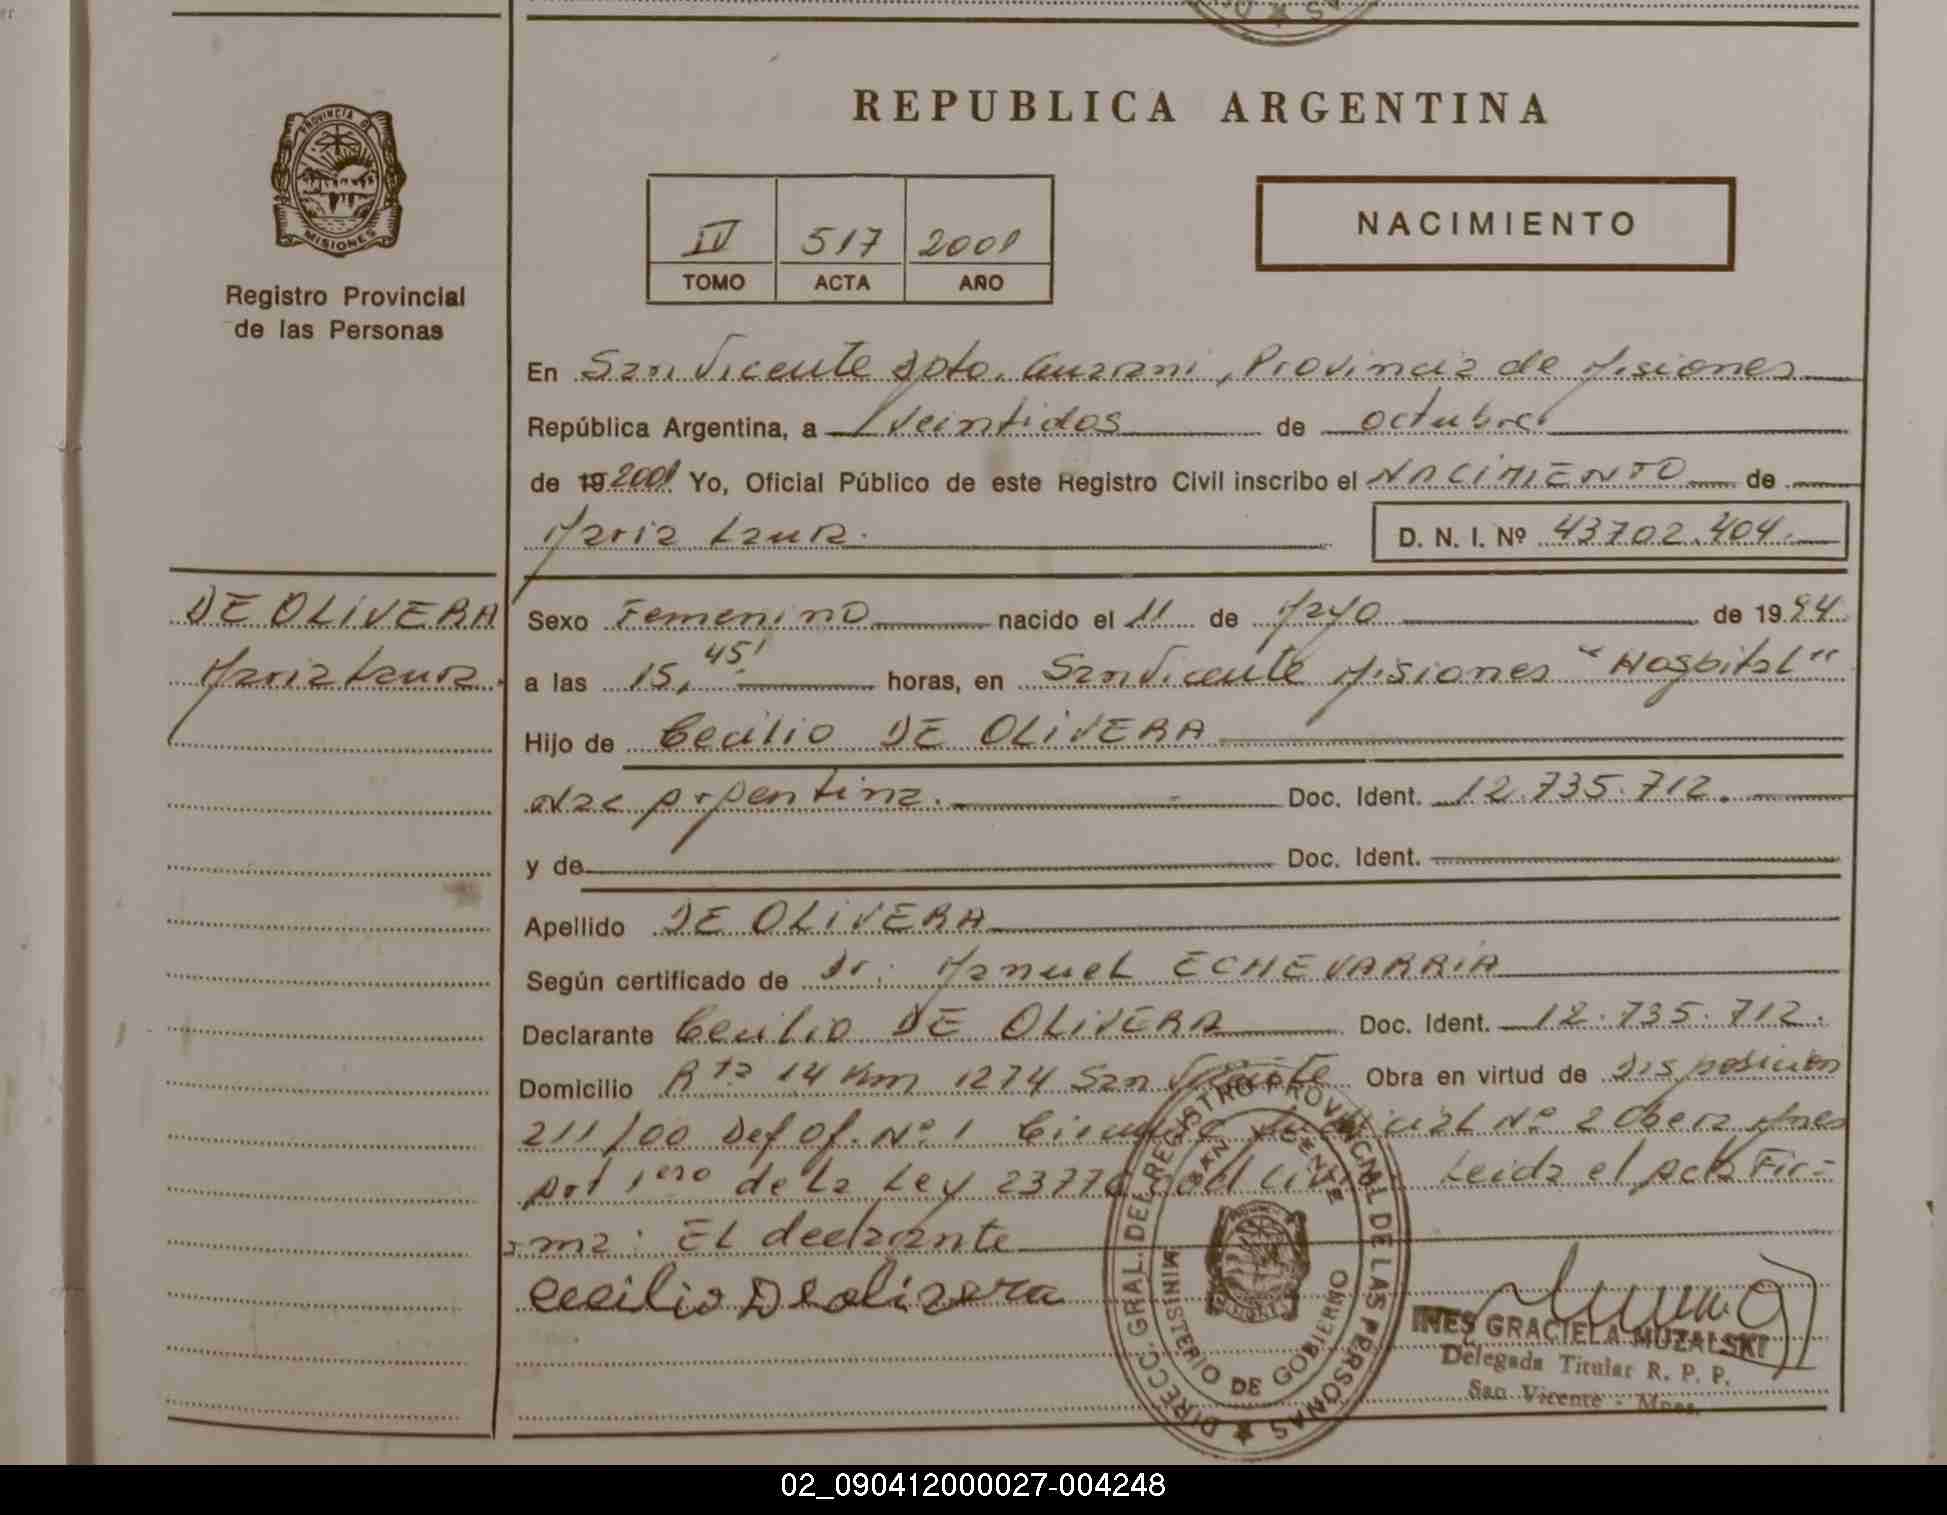 REPUBLICA ARGENTINA
PROVINCIA DE
MISIONES
Registro Provincial
de las Personas
IV 517 2001
TOMO ACTA AÑO
NACIMIENTO
En San Vicente Dpto. Guarani, Provincia de Misiones
República Argentina, a veintidos de octubre
de 19 2001 Yo, Oficial Público de este Registro Civil inscribo el NACIMIENTO de
Maria Laura. D. N. I. Nº 43702.404.
DE OLIVERA
Maria Laura.
Sexo Femenino nacido el 11 de Mayo de 1994.
a las 15,45' horas, en San Vicente Misiones "Hospital"
Hijo de Cecilio DE OLIVERA
Nac Argentina. Doc. Ident. 12.735.712.
y de Doc. Ident.
Apellido DE OLIVERA
Según certificado de Dr. Manuel ECHEVARRIA
Declarante Cecilio DE OLIVERA Doc. Ident. 12.735.712.
Domicilio Rta 14 Km 1274 San Vicente Obra en virtud de Disposicion
211/00 Def Of. Nº 1 Nº 2 Obera Mnes
Art 1ero de la Ley 23776 Leida el acta Fir=
=ma: El declarante
Cecilio De olivera
DIRECC. GRAL. DEL REGISTRO PROVINCIAL DE LAS PERSONAS
SAN VICENTE
MINISTERIO DE GOBIERNO
MISIONES
INES GRACIELA MUZALSKI
Delegada Titular R. P. P.
San Vicente - Mnes.
02_090412000027-004248